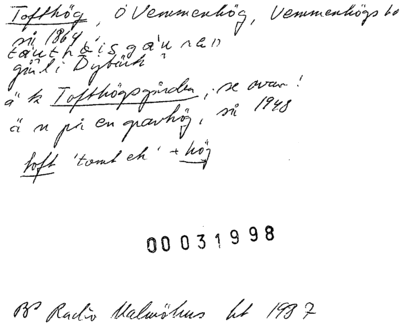 Tofthög, Ö Vemmenhög, Vemmenhögs hd
så 1864
gård i Dybäck
ä k Tofthögsgården, se ovan!
ä n på en gravhög, så 1948
toft 'tomt etc' + hög
00031998
BP Radio Malmöhus ht 1987